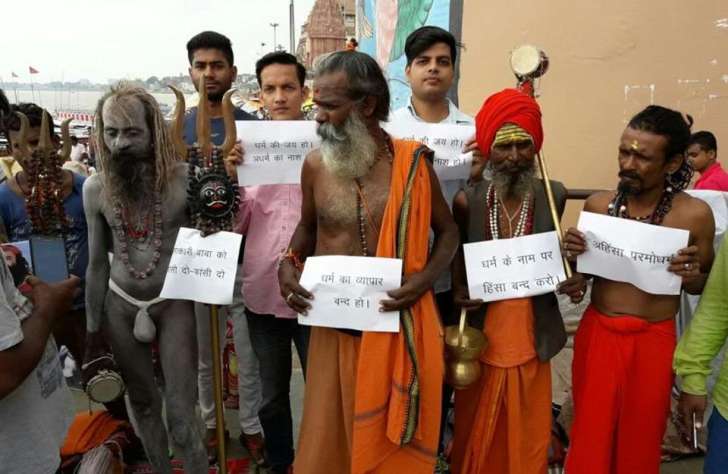 धर्म की जय हो।
अधर्म का नाश
धर्म की जय हो।
बाबा को
दो-फांसी दो
धर्म का व्यापार
बन्द हो।
धर्म के नाम पर
हिंसा बन्द करो।
अहिंसा परमोधर्म